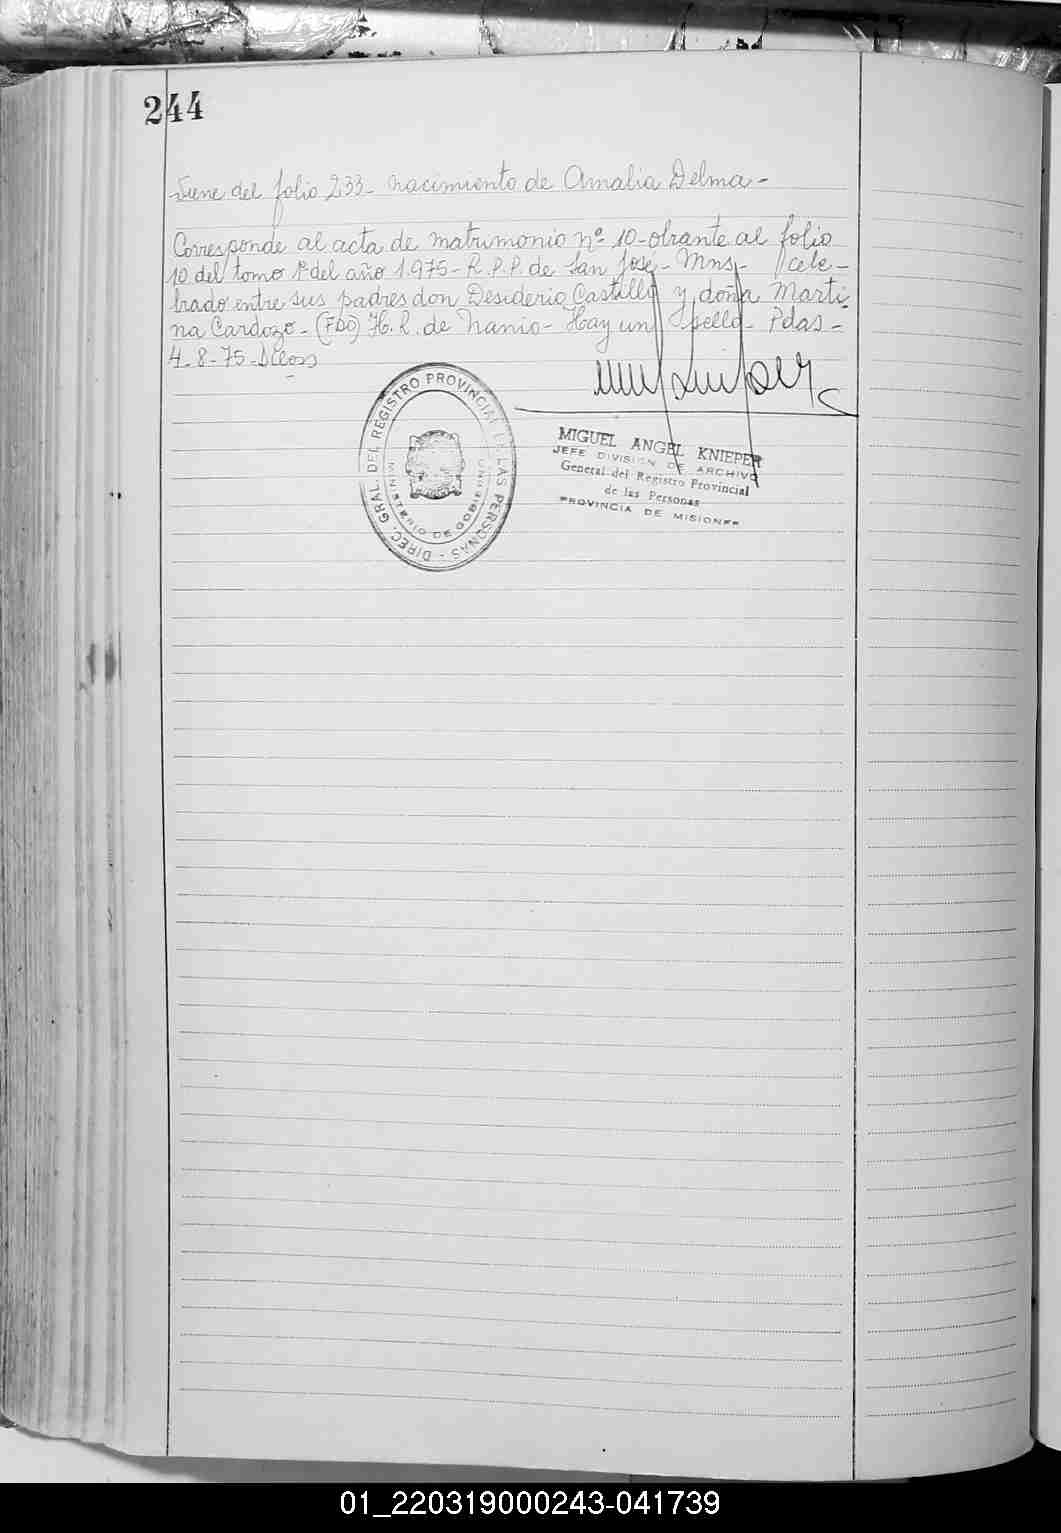 244
Viene del folio 233- nacimiento de Amalia Delma-
Corresponde al acta de matrimonio nº 10-obrante al folio
10 del tomo 1º del año 1.975- R.P.P. de San José- Mns- cele-
brado entre sus padres don Desiderio Castillo y doña Marti-
na Cardozo- (FDO) H.R. de Nanio- Hay un sello- Pdas-
4-8-75-
DIREC. GRAL. DEL REGISTRO PROVINCIAL DE LAS PERSONAS -
MINISTERIO DE GOBIERNO
MIGUEL ANGEL KNIEPER
JEFE DIVISION DE ARCHIVO
General del Registro Provincial
de las Personas
PROVINCIA DE MISIONES
01_220319000243-041739